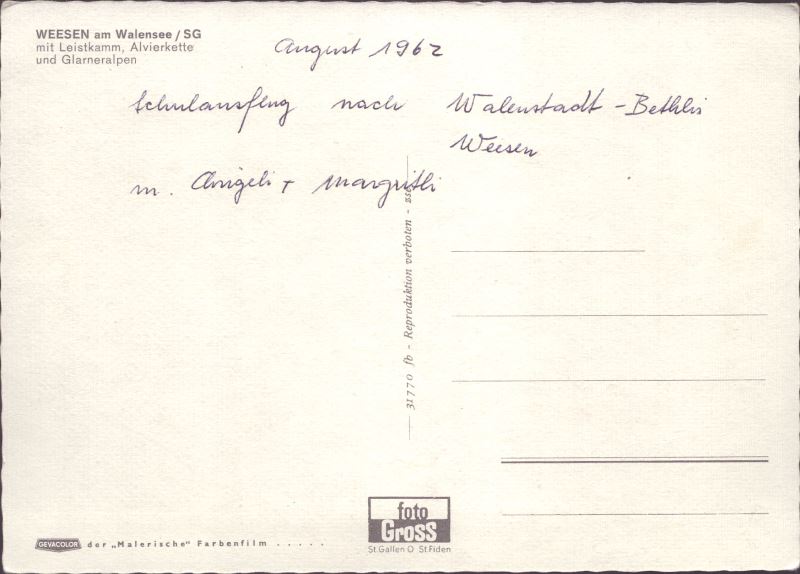 WEESEN am Walensee / SG
mit Leistkamm, Alvierkette
und Glarneralpen
August 1962
Schulausflug nach Walenstadt - Bethlis
Weesen
m. Angeli + Margritli
31770 fb - Reproduktion verboten -
foto
Gross
St.Gallen O St.Fiden
GEVACOLOR der „Malerische" Farbenfilm . . . . .